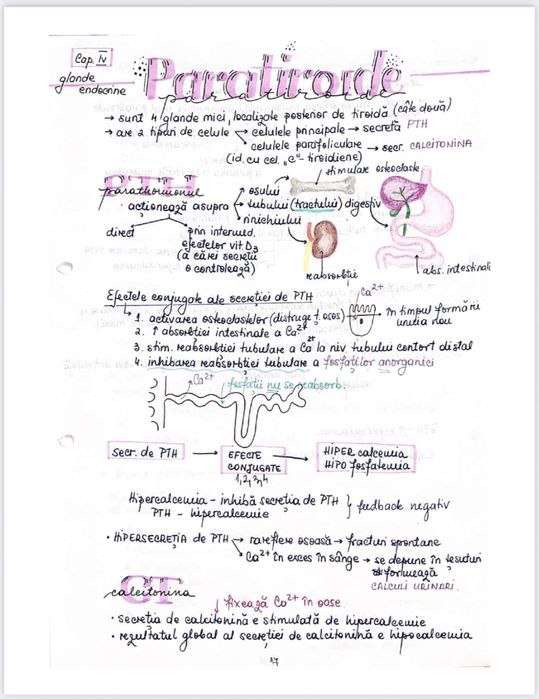 Cap. IV
glande
endocrine
Paratiroide
paratiroide
→ sunt 4 glande mici, localizate posterior de tiroidă (câte două)
→ are 2 tipuri de celule → celulele principale → secretă PTH
celulele parafoliculare → secr. CALCITONINA
(id. cu cel. "C" - tiroidiene)
stimulare osteoclaste
PTH
parathormonul
• acționează asupra → osului
→ tubului (tractului) digestiv
→ rinichiului
direct
prin intermed.
efectelor vit. D3
(a cărei secreție
o controlează)
reabsorbție
abs. intestinală
Efectele conjugate ale secreției de PTH
Ca2+
1. activarea osteoclastelor (distrug ț. osos)
în timpul formării
unuia nou
2. ↑ absorbției intestinale a Ca2+
3. stim. reabsorbției tubulare a Ca2+ la niv. tubului contort distal
4. inhibarea reabsorbției tubulare a fosfaților anorganici
Ca2+
fosfații nu se reabsorb
secr. de PTH → EFECTE
CONJUGATE
1,2,3,4
→ HIPER calcemia
HIPO fosfatemia
Hipercalcemia - inhibă secreția de PTH
PTH - hipercalcemie
} feedback negativ
• HIPERSECREȚIA DE PTH → rarefiere osoasă → fracturi spontane
→ Ca2+ în exces în sânge → se depune în țesuturi
formează
CALCULI URINARI.
CT
calcitonina
↓ fixează Ca2+ în oase
• secreția de calcitonină e stimulată de hipercalcemie
• rezultatul global al secreției de calcitonină e hipocalcemia